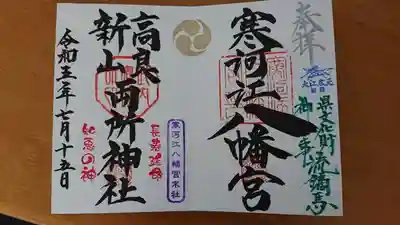 奉拝
県文化財 流鏑馬
寒河江八幡宮
寒河江八幡宮末社
長寿延命
高良
新山
両所神社
知恵の神
令和五年七月十五日